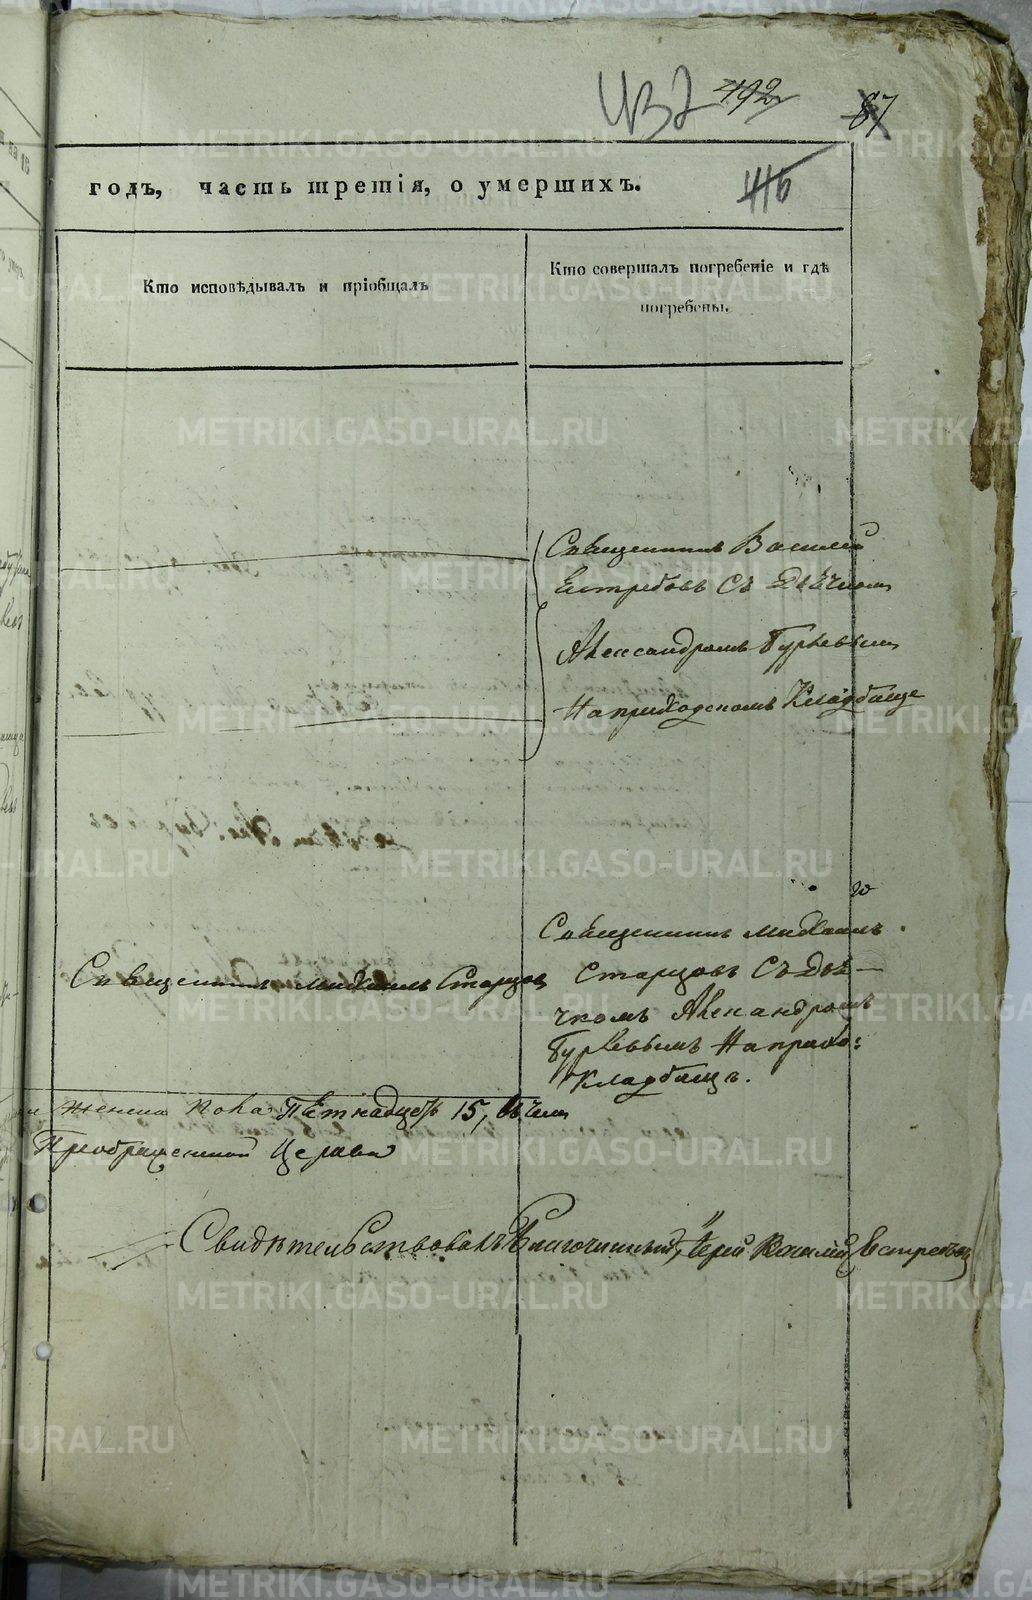 192 87
годъ, часть третія, о умершихъ.
Кто исповѣдывалъ и пріобщалъ
Кто совершалъ погребеніе и гдѣ
погребены.
Священникъ Василій
Ястребовъ Съ Дьячкомъ
Александромъ Гурьевымъ
На приходскомъ Кладбище
Священникъ Михаилъ Старцов
Священникъ Михаилъ
Старцовъ Съ Дья-
чкомъ Александромъ
Гурьевымъ На прихо:
Кладбищѣ.
женска пола Пѣтнадцеть 15,
Преображенской Церкви
Свидѣтельствовалъ Благочинный, Іерей Василій Ястребовъ
METRIKI.GASO-URAL.RU